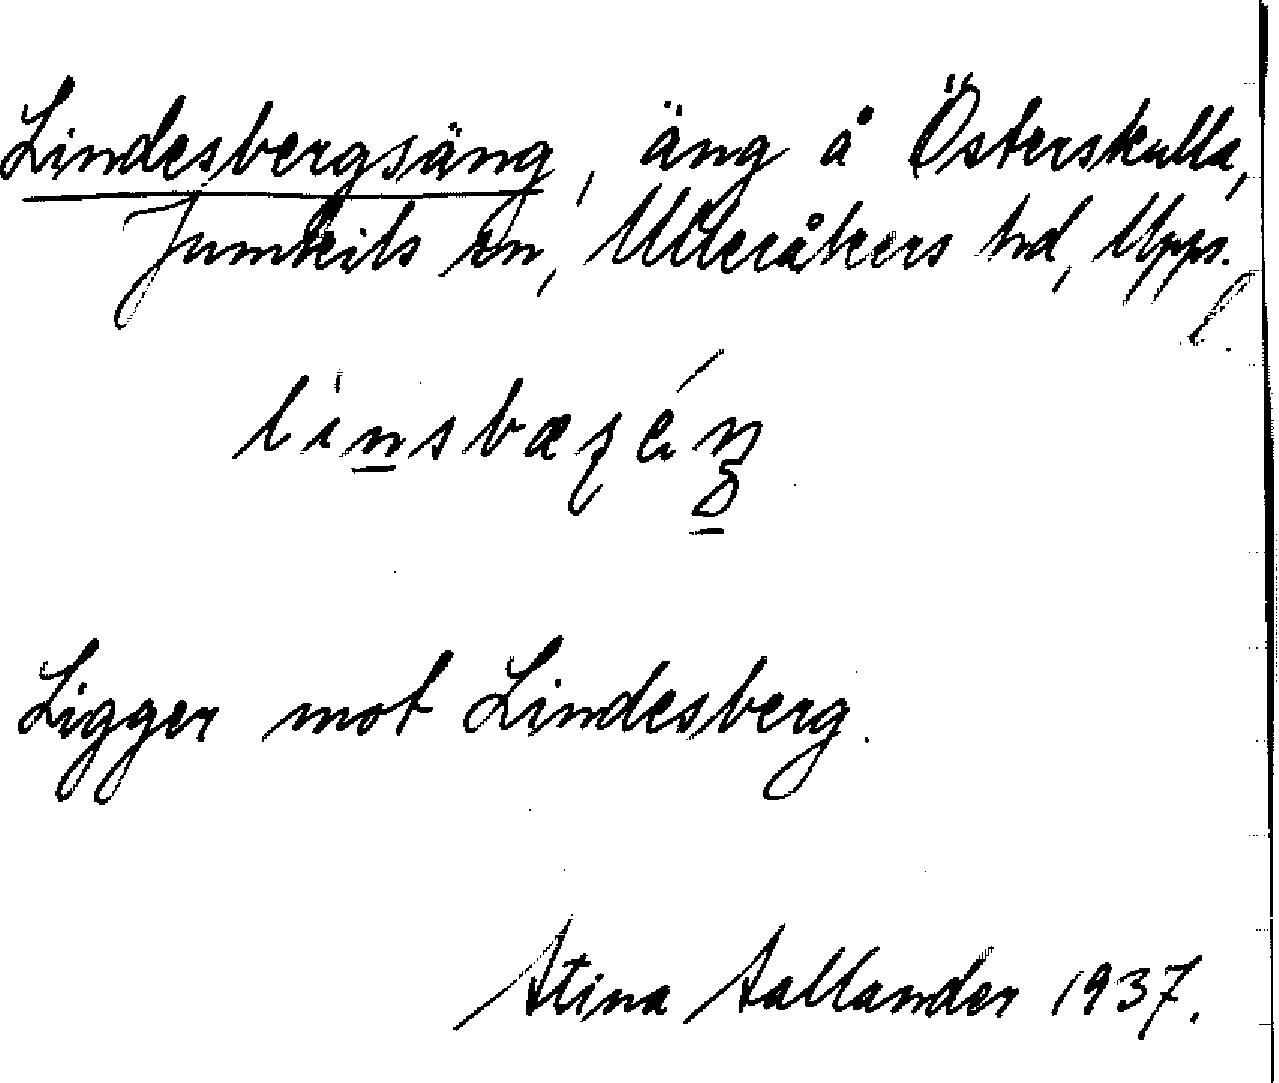 Lindesbergsäng, äng å Österskulla,
Jumkils sn, Ulleråkers hd, Upps. l.
Ligger mot Lindesberg.
Stina Sallander 1937.